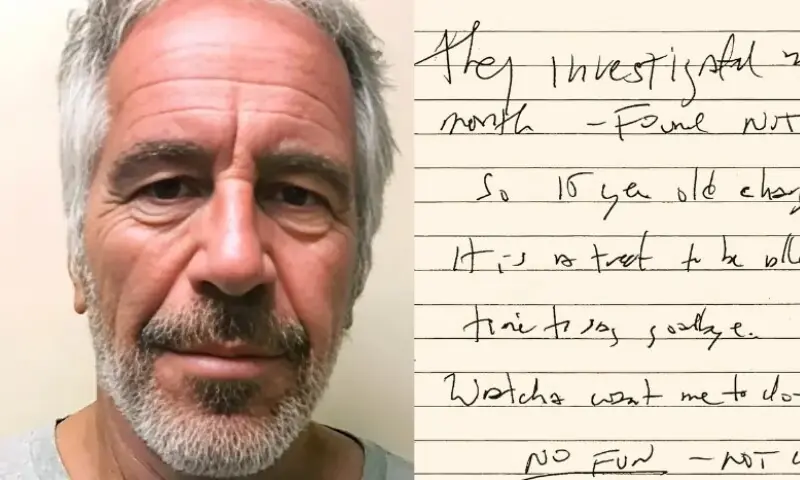 They investigated
month - Found NOT
So 15 year old
It is a treat to be
time to say goodbye.
Watcha want me to do -
NO FUN - NOT